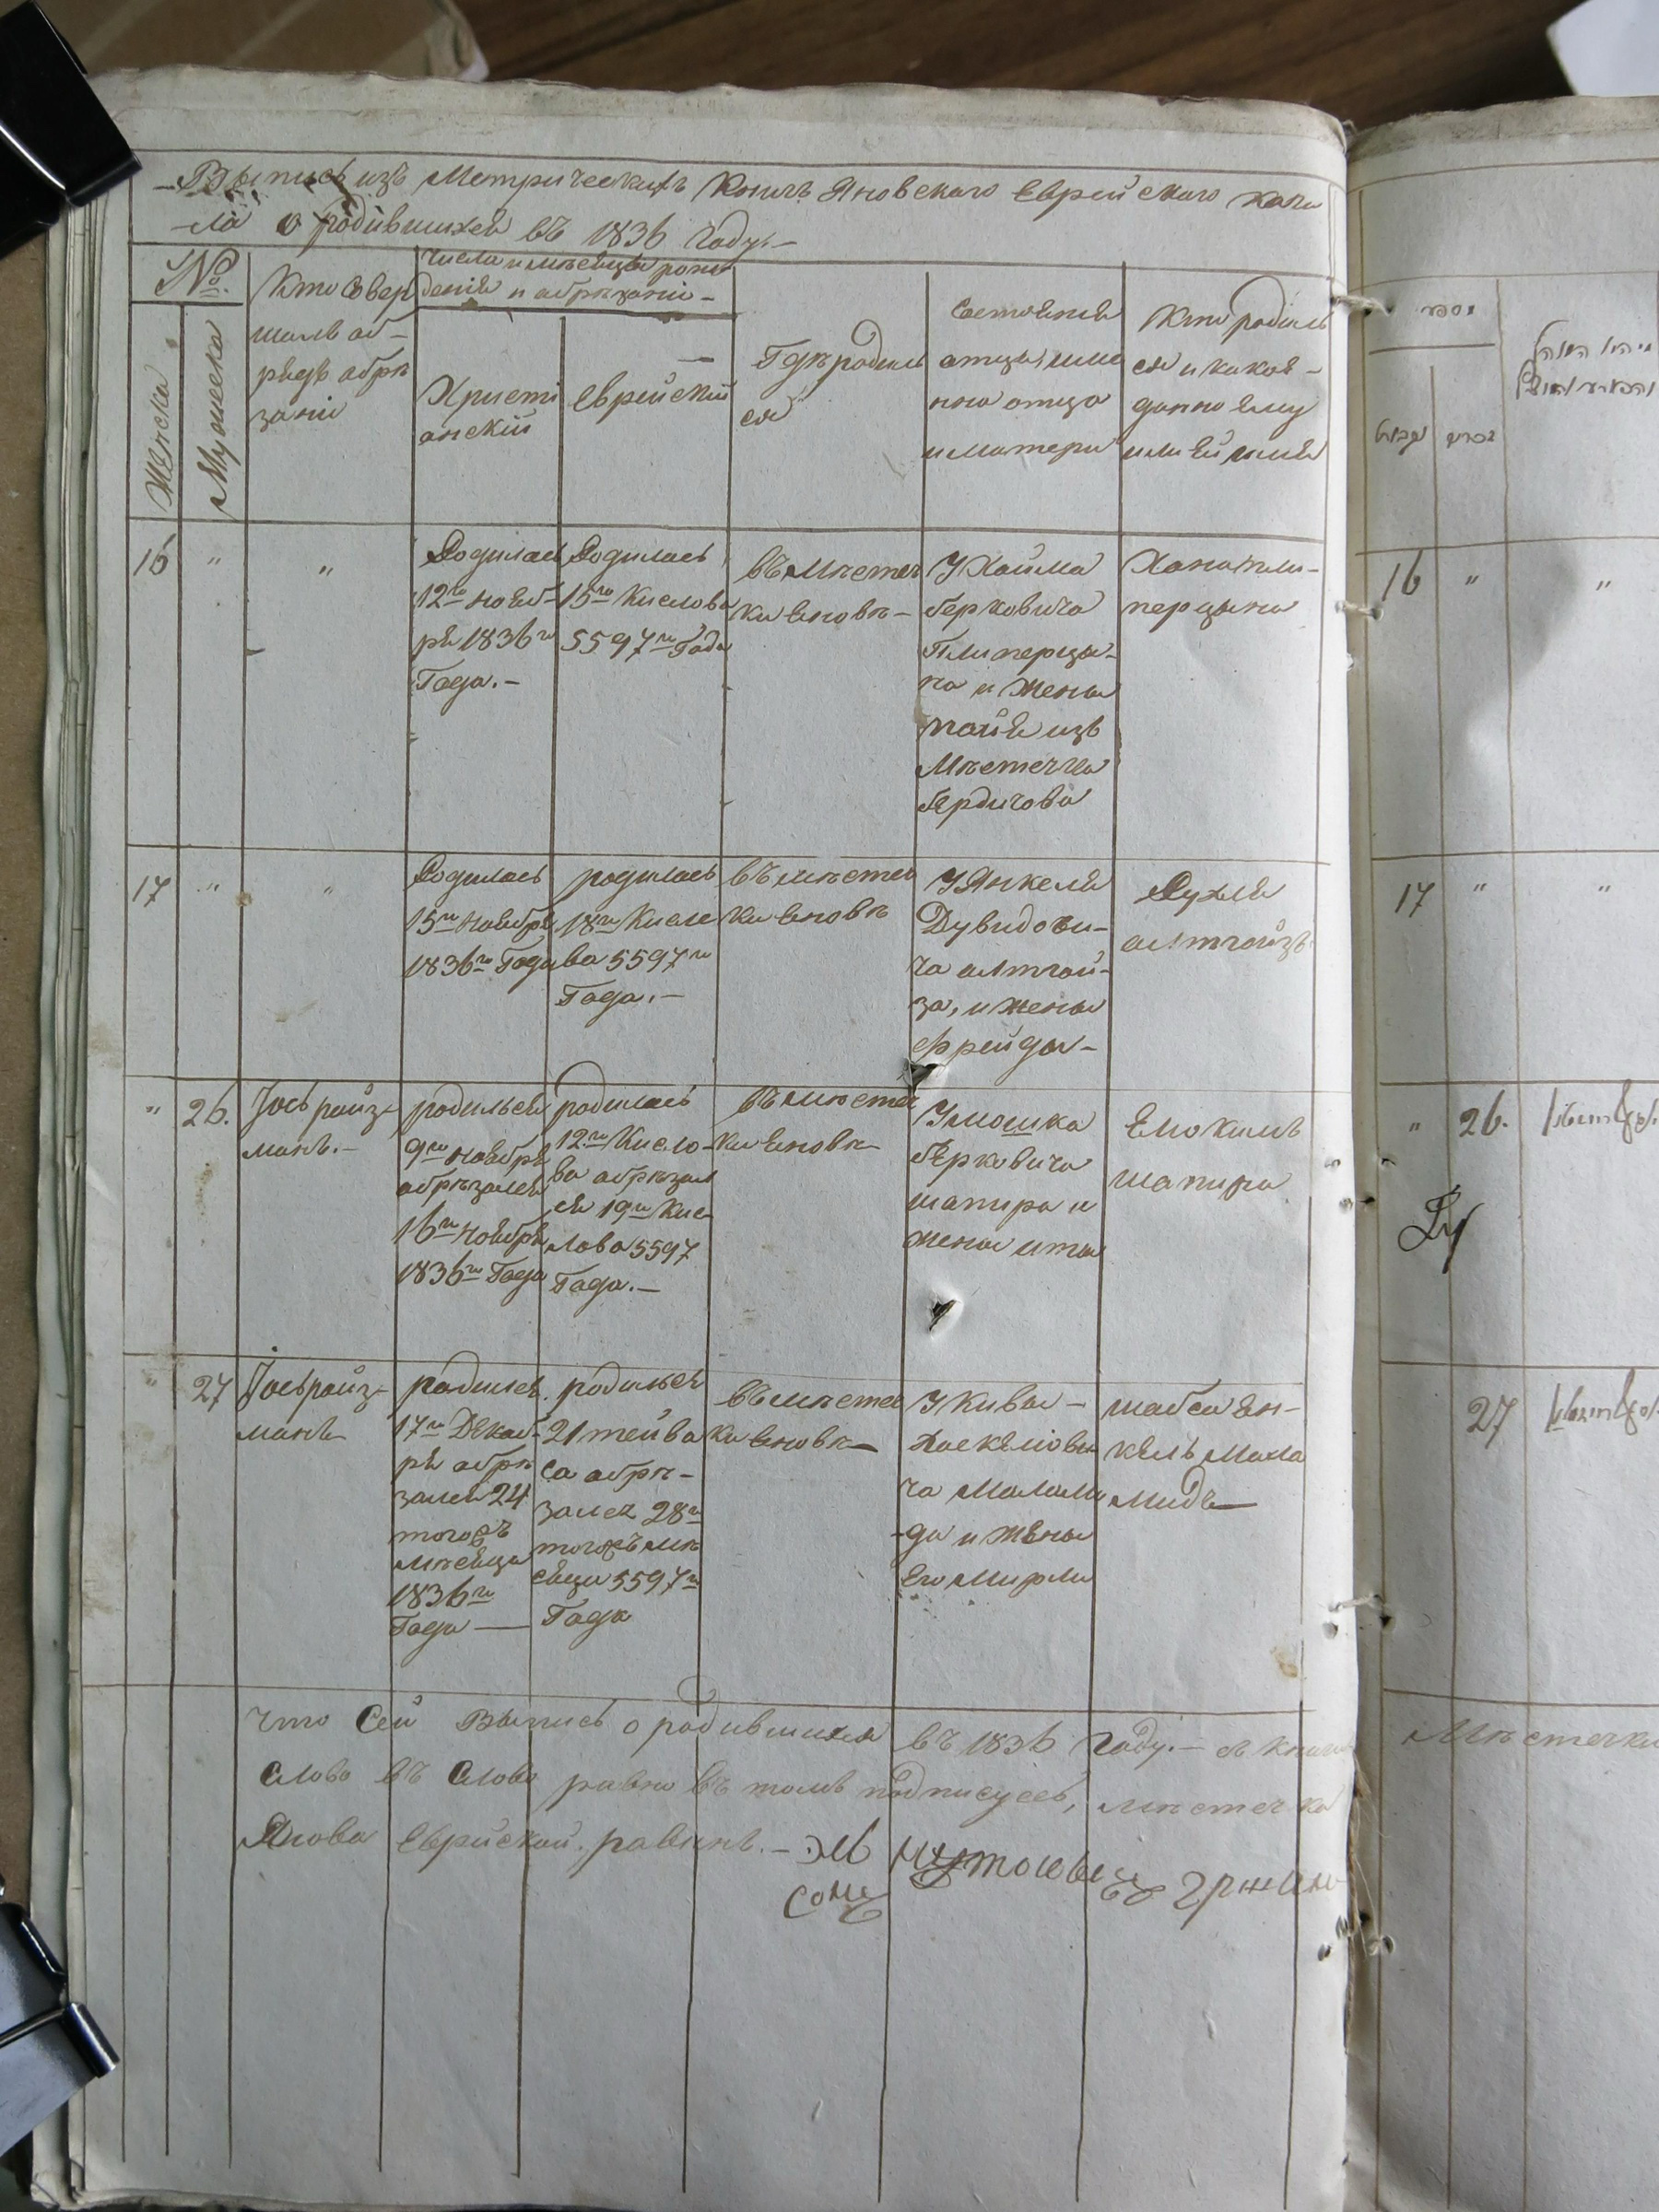 Выпись изъ Метрическихъ Книгъ Яновскаго Еврейскаго кага
ла о родившихся въ 1836 году.—
№.
Женска
Мужеска
Кто совер
шалъ об-
рядъ обрѣ
занiи
Числа и мѣсяцы рож
денія и обрѣзанiи—
Христі
анскій
Еврейскій
Гдѣ родил
ся
Состоянія
отца, имя
отца
и матери
Кто родил
ся и какое-
данно ему
или ей имя
16
"
"
Родилась
12го нояб-
ря 1836го
Года.—
Родилась
15го Кислова
5597го Года
въ мѣстеч
ки Яновѣ—
У Хайма
Берковича
Плиперцы-
на и жены
изъ
Мѣстечка
Бердичова
Хана Пли-
перцына
17
"
"
Родилась
15го Ноября
1836го Года
родилась
18го Кисле
ва 5597го
Года.—
въ мѣстеч
ки Яновѣ
У Янкеля
Дувидови-
ча
за, и жены
Фрейды—
Рухля
"
26.
ІосьРойз-
манъ.—
родился
9го Ноября
обрѣзался
16го Ноября
1836го Года
родилась
12го Кисло-
ва обрѣзал
ся 19го Кис-
лова 5597
Года.—
въ мѣстеч
ки Яновѣ
У Мошка
Берковича
Шапира и
жены Иты
Елокимъ
Шапира
"
27
Іось Ройз-
манъ
родился.
17го Декаб-
ря обрѣ
зался 24
тогожъ
мѣсяца
1836го
Года —
родился
21 тейва
са обрѣ-
зался 28го
тогожъ мѣ
сяца 5597го
Года
въ мѣстеч
ки Яновѣ—
У Кивы—
Хаскеліови
ча Маламе
-да и жены
его Мирли
Шабса Ян-
кель Мала
медъ—
Что сей Выпись о родившихся въ 1836 году.— съ книги
Слово въ Слово равно въ томъ подписуюсь, мѣстечка
Янова Еврйской. равинъ.—
16
"
"
17
"
"
"
26.
27
Мѣстечки